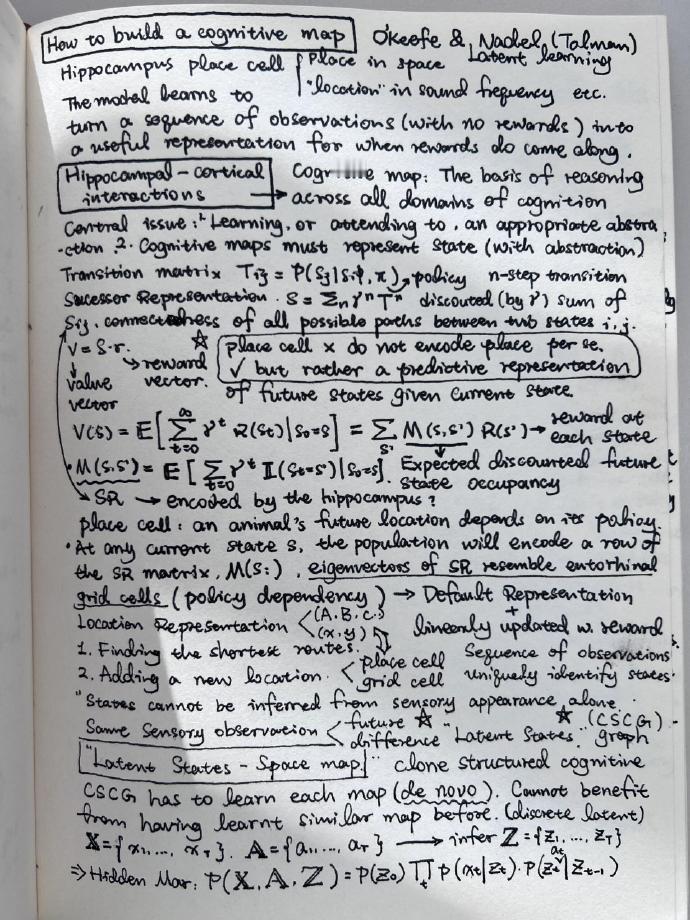 How to build a cognitive map O'Keefe & Nadel (Tolman)
Hippocampus place cell { place in space Latent learning
"location" in sound frequency etc.
The model learns to
turn a sequence of observations (with no rewards) into
a useful representation for when rewards do come along.
Hippocampal-cortical interactions → Cognitive map: The basis of reasoning
across all domains of cognition
Central issue: 1. Learning, or attending to, an appropriate abstra
-ction 2. Cognitive maps must represent state (with abstraction)
Transition matrix Tij = P(Sj|Si, π) → policy n-step transition
Sucessor Representation. S = Σn γⁿTⁿ discouted (by γ) sum of
Sij. connectedness of all possible paths between two states i, j.
V = S·r. ☆ place cell x do not encode place per se,
→ reward vector. ✓ but rather a predictive representation
value vector of future states given current state.
V(s) = E[Σ_{t=0}^∞ γᵗ R(St)|S₀=s] = Σ_{s'} M(s,s') R(s') → reward at each state
• M(s,s') = E[Σ_{t=0} γᵗ 𝕀(St=s')|S₀=s]. Expected discounted future
state occupancy
SR → encoded by the hippocampus?
place cell: an animal's future location depends on its policy.
• At any current state s, the population will encode a row of
the SR matrix, M(S:), eigenvectors of SR resemble entorhinal
grid cells (policy dependency) → Default Representation
+
Location Representation < (A.B.C.) (x.y) linearly updated w. reward
1. Finding the shortest routes. Sequence of observations
2. Adding a new location. < place cell grid cell uniquely identify states
"States cannot be inferred from sensory appearance alone.
Same sensory observation < future ☆ difference "Latent States" ☆ (CSCG) graph
"Latent States - Space map" clone structured cognitive
CSCG has to learn each map (de novo). Cannot benefit
from having learnt similar map before. (discrete latent)
𝕏={x₁,..., x_T}. 𝔸={a₁,..., a_T} → infer ℤ={z₁,..., z_T}
⇒ Hidden Mar: P(𝕏,𝔸,ℤ) = P(z₀) ∏_t P(xt|zt)·P(zt, at|zt-1)